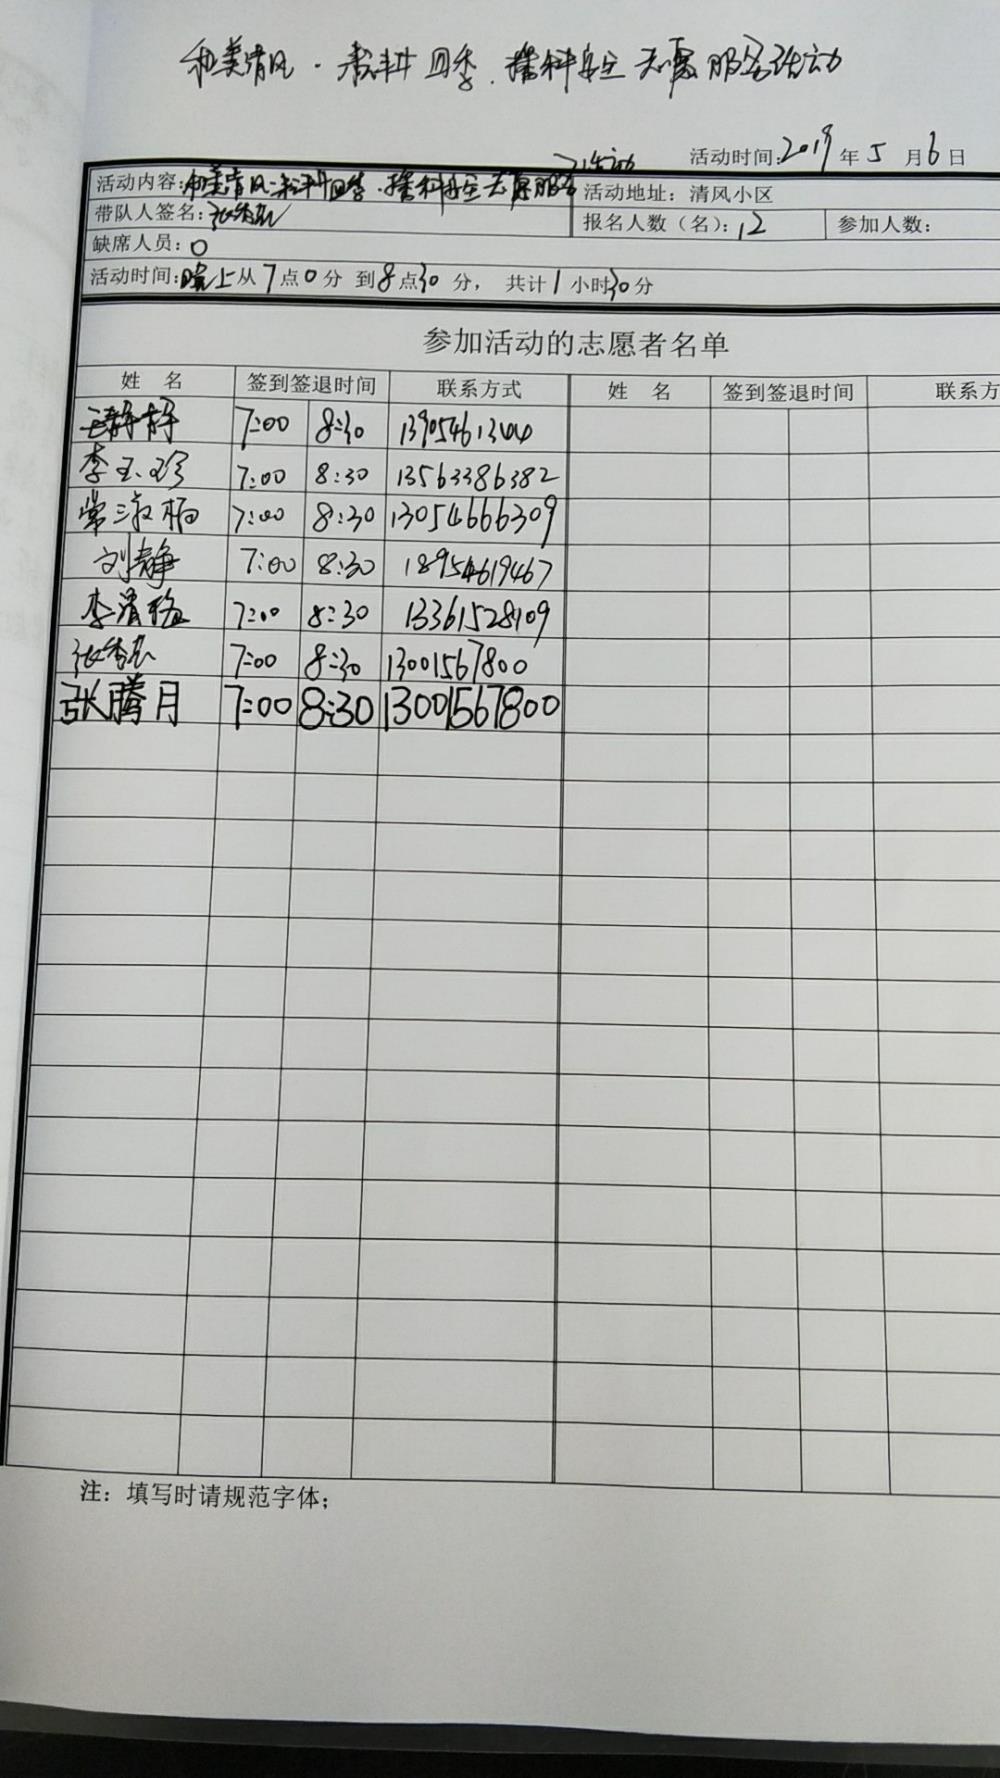 和美清风·春耕四季·播种安全志愿服务活动
活动时间:2019年5月6日
活动内容:和美清风·春耕四季·播种安全志愿服务活动 活动地址:清风小区
带队人签名:张秀 报名人数(名):12 参加人数:
缺席人员:0
活动时间:晚上从7点0分 到8点30分, 共计1小时30分
参加活动的志愿者名单
姓 名 签到签退时间 联系方式 姓 名 签到签退时间 联系方
王静静 7:00 8:30 13905461344
李玉珍 7:00 8:30 13563386382
常淑梅 7:00 8:30 13054666309
刘静 7:00 8:30 18954619467
李清 7:00 8:30 13361528109
张秀 7:00 8:30 13001567800
张腾月 7:00 8:30 13001567800
注:填写时请规范字体;